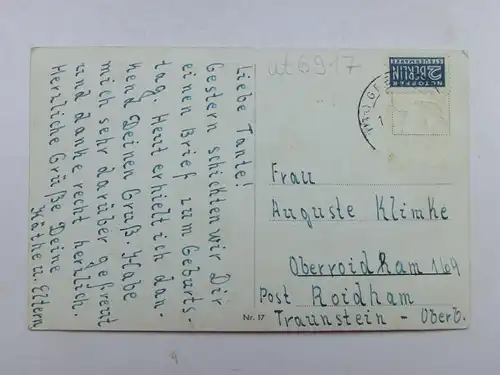 ut6917
NOTOPFER
2 BERLIN
STEUERMARKE
Liebe Tante!
Gestern schickten wir Dir
einen Brief zum Geburts-
tag. Heut erhielt ich dan-
kend Deinen Gruß. Habe
mich sehr darüber gefreut
und danke recht herzlich.
Herzliche Grüße Deine
Käthe u. Eltern
Frau
Auguste Klimke
Oberroidham 169
Post Roidham
Traunstein - Oberb.
Nr. 17